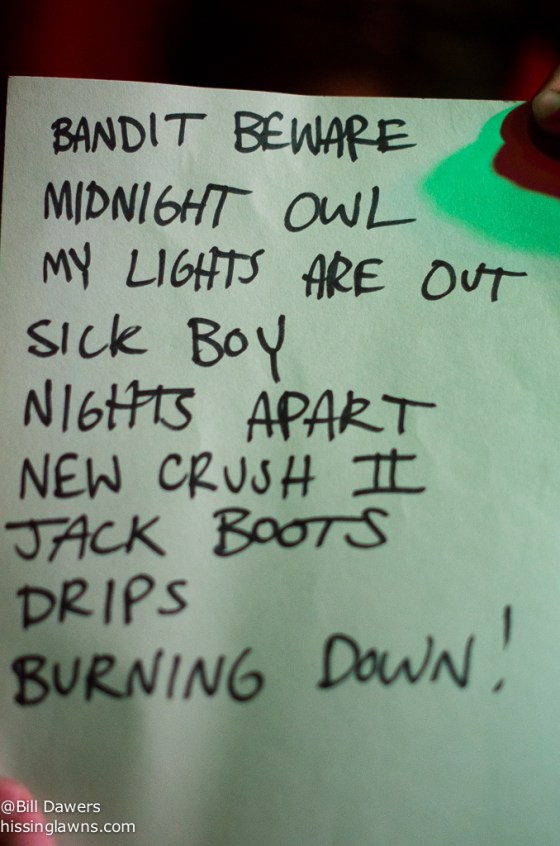 BANDIT BEWARE
MIDNIGHT OWL
MY LIGHTS ARE OUT
SICK BOY
NIGHTS APART
NEW CRUSH II
JACK BOOTS
DRIPS
BURNING DOWN!
@Bill Dawers
hissinglawns.com